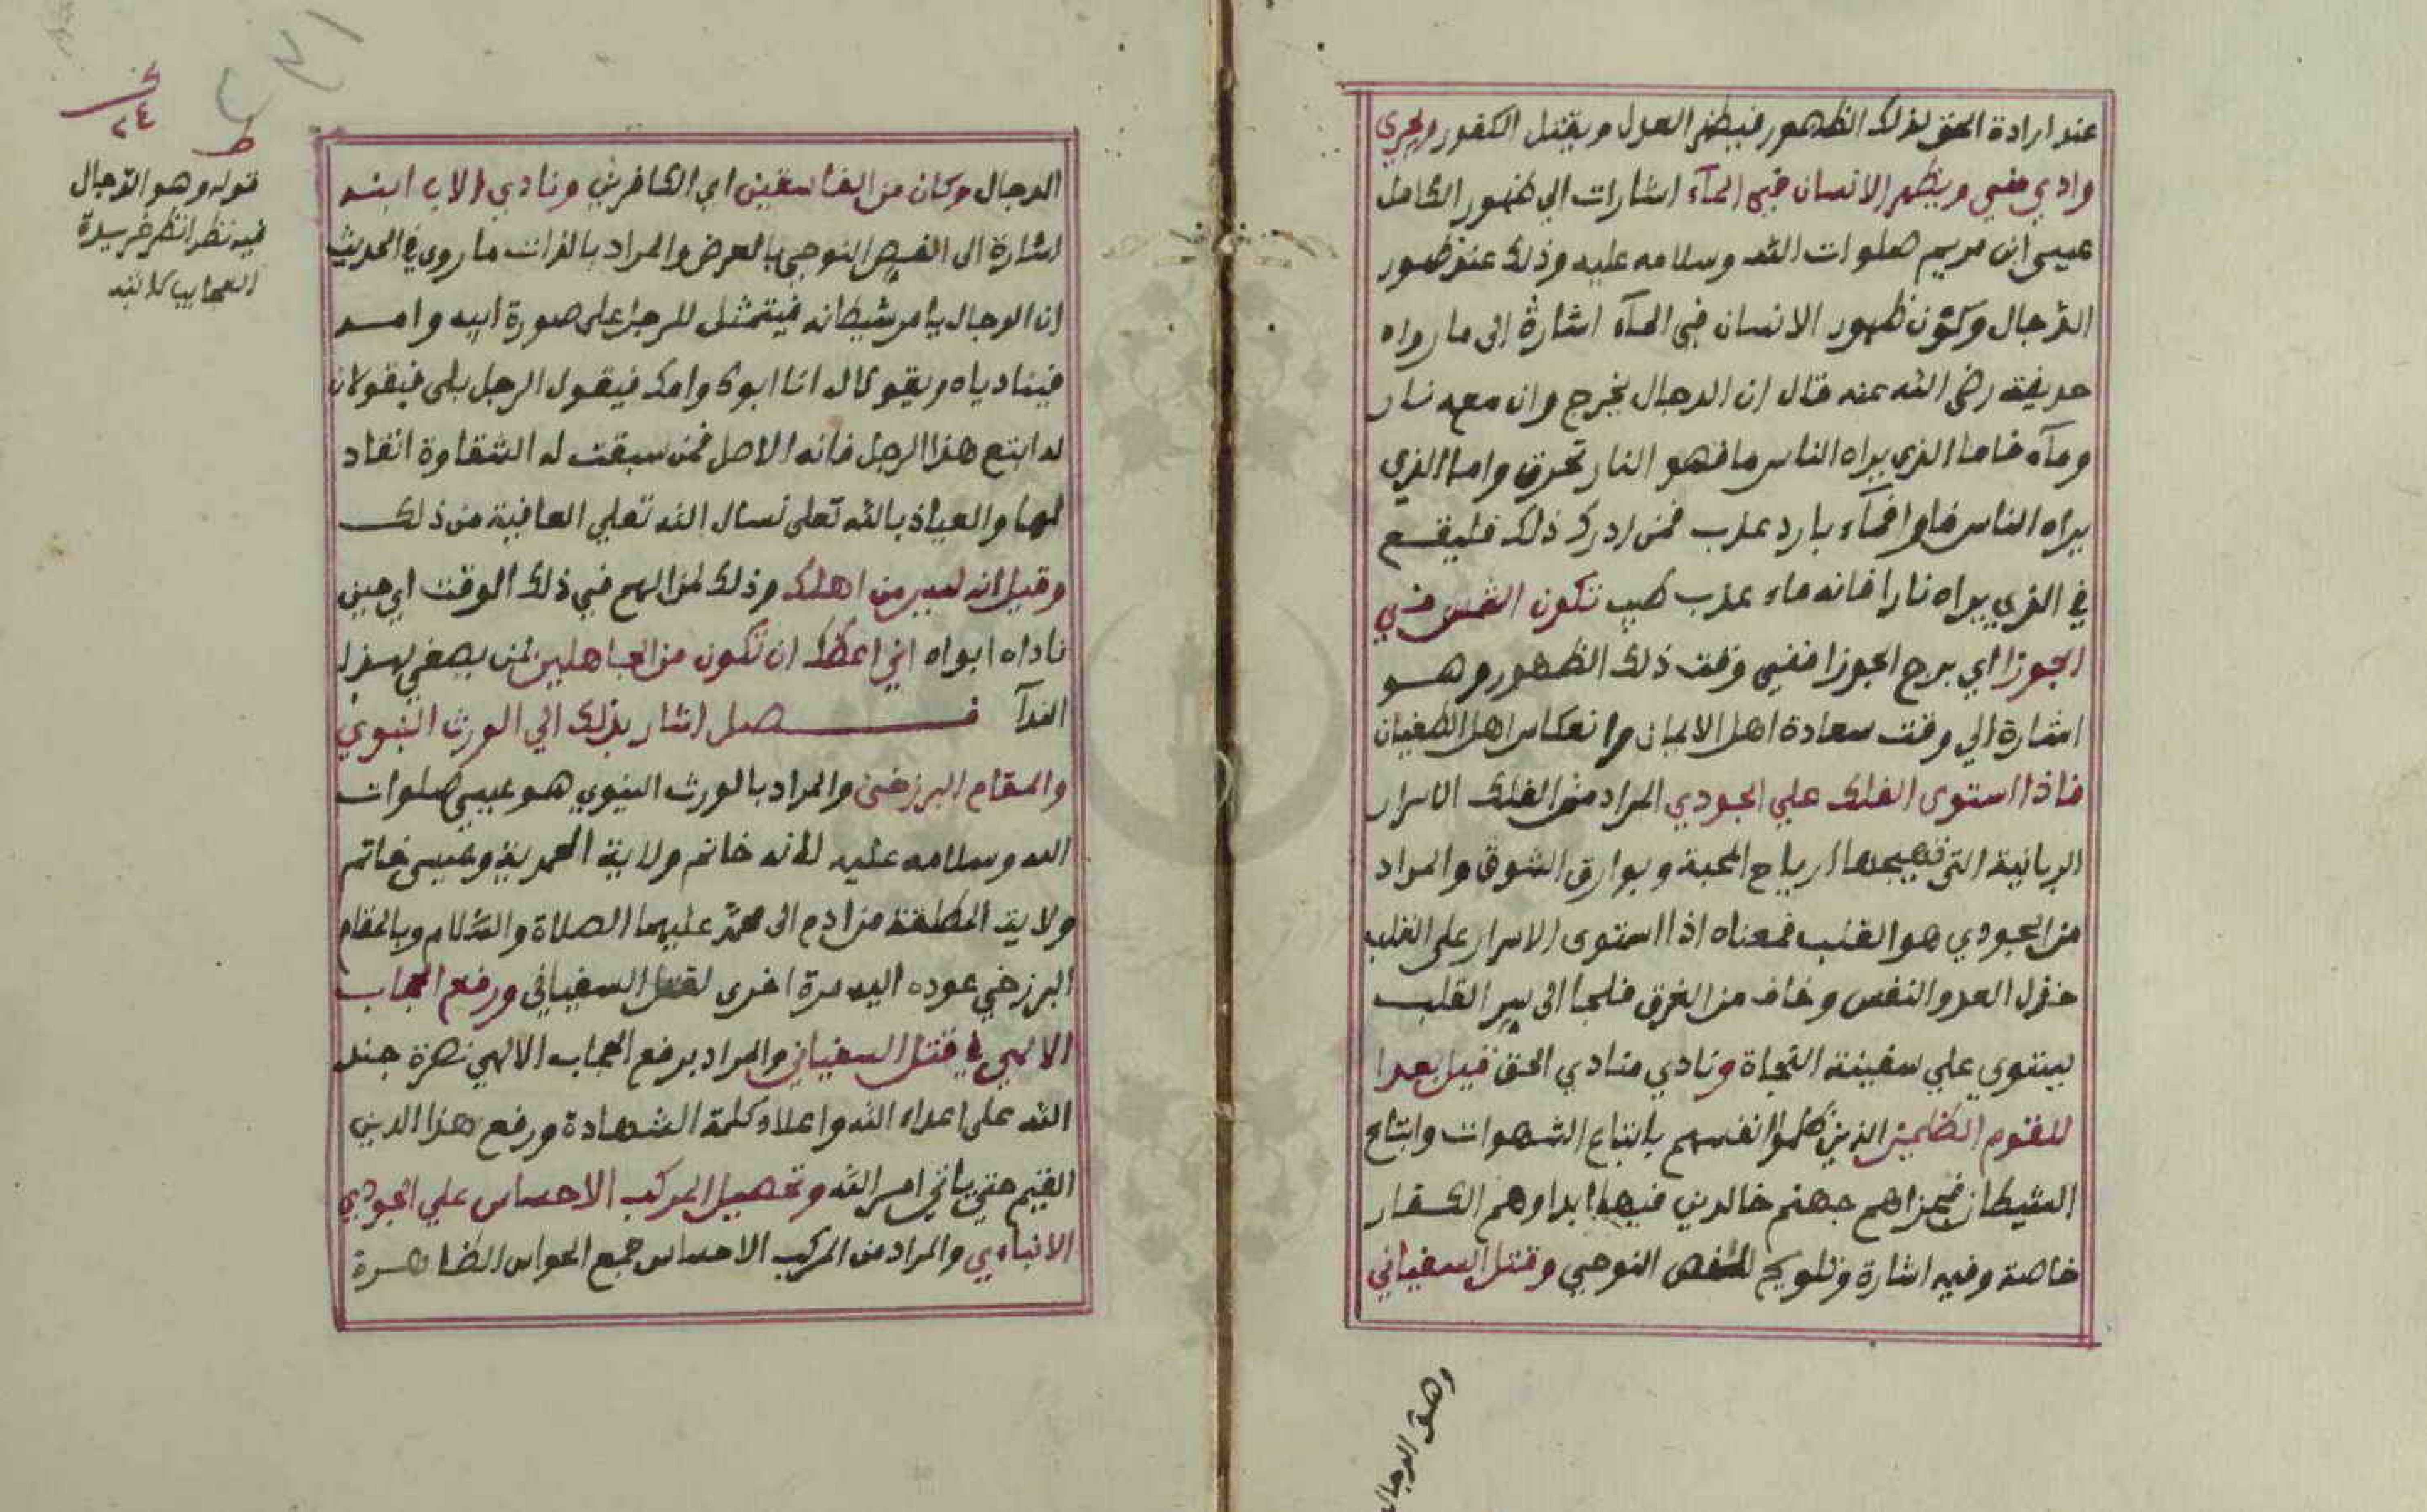 عند ارادة الحق لذلك الظهور فيظهر العدل ويقتل الكفور ويجري
وادي مني ويظهر الانسان في المآء اشارات الي ظهور الكامل
عيسى ابن مريم صلوات الله وسلامه عليه وذلك عند ظهور
الدجال وكون ظهور الانسان في المآء اشارة الى ما رواه
حذيفة رضي الله عنه قال ان الدجال يخرج وان معه نار
ومآء فاما الذي يراه الناس ما فهو النار تحرق واما الذي
يراه الناس نارا فمآء بارد عذب فمن ادرك ذلك فليقع
في الذي يراه نارا فانه ماء عذب طيب تكون الشمس في
الجوزا اي برج الجوزا ففي وقت ذلك الظهور وهو
اشارة الي وقت سعادة اهل الايمان وانعكاس اهل الطغيان
فاذا استوى الفلك علي الجودي المراد من الفلك الاسرار
الربانية التي تهيجها ارياح المحبة وبوارق الشوق والمراد
من الجودي هو القلب فمعناه اذا استوى الاسرار على القلب
خذل العدو النفس وخاف من الغرق فلجا الى بير القلب
ليستوى علي سفينة النجاة ونادي منادي الحق قيل بعدا
للقوم الظلمين الذين ظلموا انفسهم باتباع الشهوات وابتاح
الشيطان فجزاهم جهنم خالدين فيها ابدا وهم الكفار
خاصة وفيه اشارة وتلويح للفص النوحي وقتل السفياني
وهو الدجال
الدجال وكان من الفاسقين اي الكافرين ونادي الاب ابنه
اشارة الى الفص النوحي بالعرض والمراد بالذات ما روي في الحديث
ان الدجال يامر شيطانه فيتمثل للرجل على صورة ابيه وامه
فينادياه ويقولان انا ابوك وامك فيقول الرجل بلى فيقولان
له اتبع هذا الرجل فانه الاصل فمن سبقت له الشقاوة انقاد
لهما والعياذ بالله تعلى نسال الله تعلي العافية من ذلك
وقيل انه ليس من اهلك وذلك لمن الهم في ذلك الوقت اي حين
ناداه ابواه اني اعظك ان تكون من الجاهلين لمن يصغي لهذا
الندآ فصل اشار بذلك الي الورث النبوي
والمقام البرزخي والمراد بالورث النبوي هو عيسي صلوات
الله وسلامه عليه لانه خاتم ولاية المحمدية وعيسى خاتم
ولاية المطلقة من ادم الى محمد عليهما الصلاة والسلام وبالمقام
البرزخي عوده اليه مرة اخرى لقتل السفياني ورفع الحجاب
الالهي في قتل السفياني والمراد برفع الحجاب الالهي نصرة جند
الله على اعداء الله واعلاء كلمة الشهادة ورفع هذا الدين
القيم حتي ياتي امر الله وتحصيل المركب الاحساس علي الجودي
الانباءي والمراد من المركب الاحساس جمع الحواس الظاهرة
٢٤
ط
قوله وهو الدجال
فيه نظر انظر خريدة
العجايب كاتبه